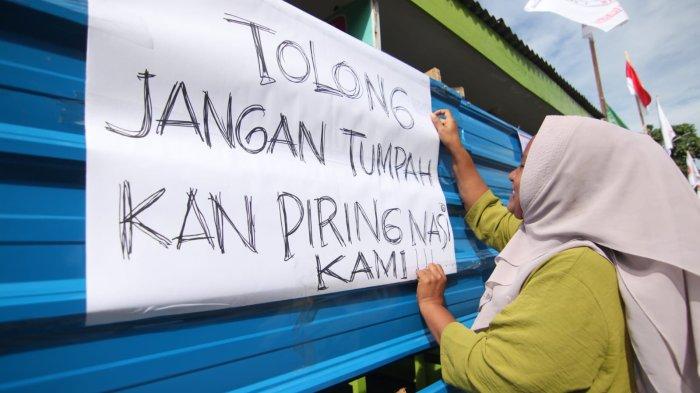 TOLONG
JANGAN TUMPAH
KAN PIRING NASI
KAMI !!!